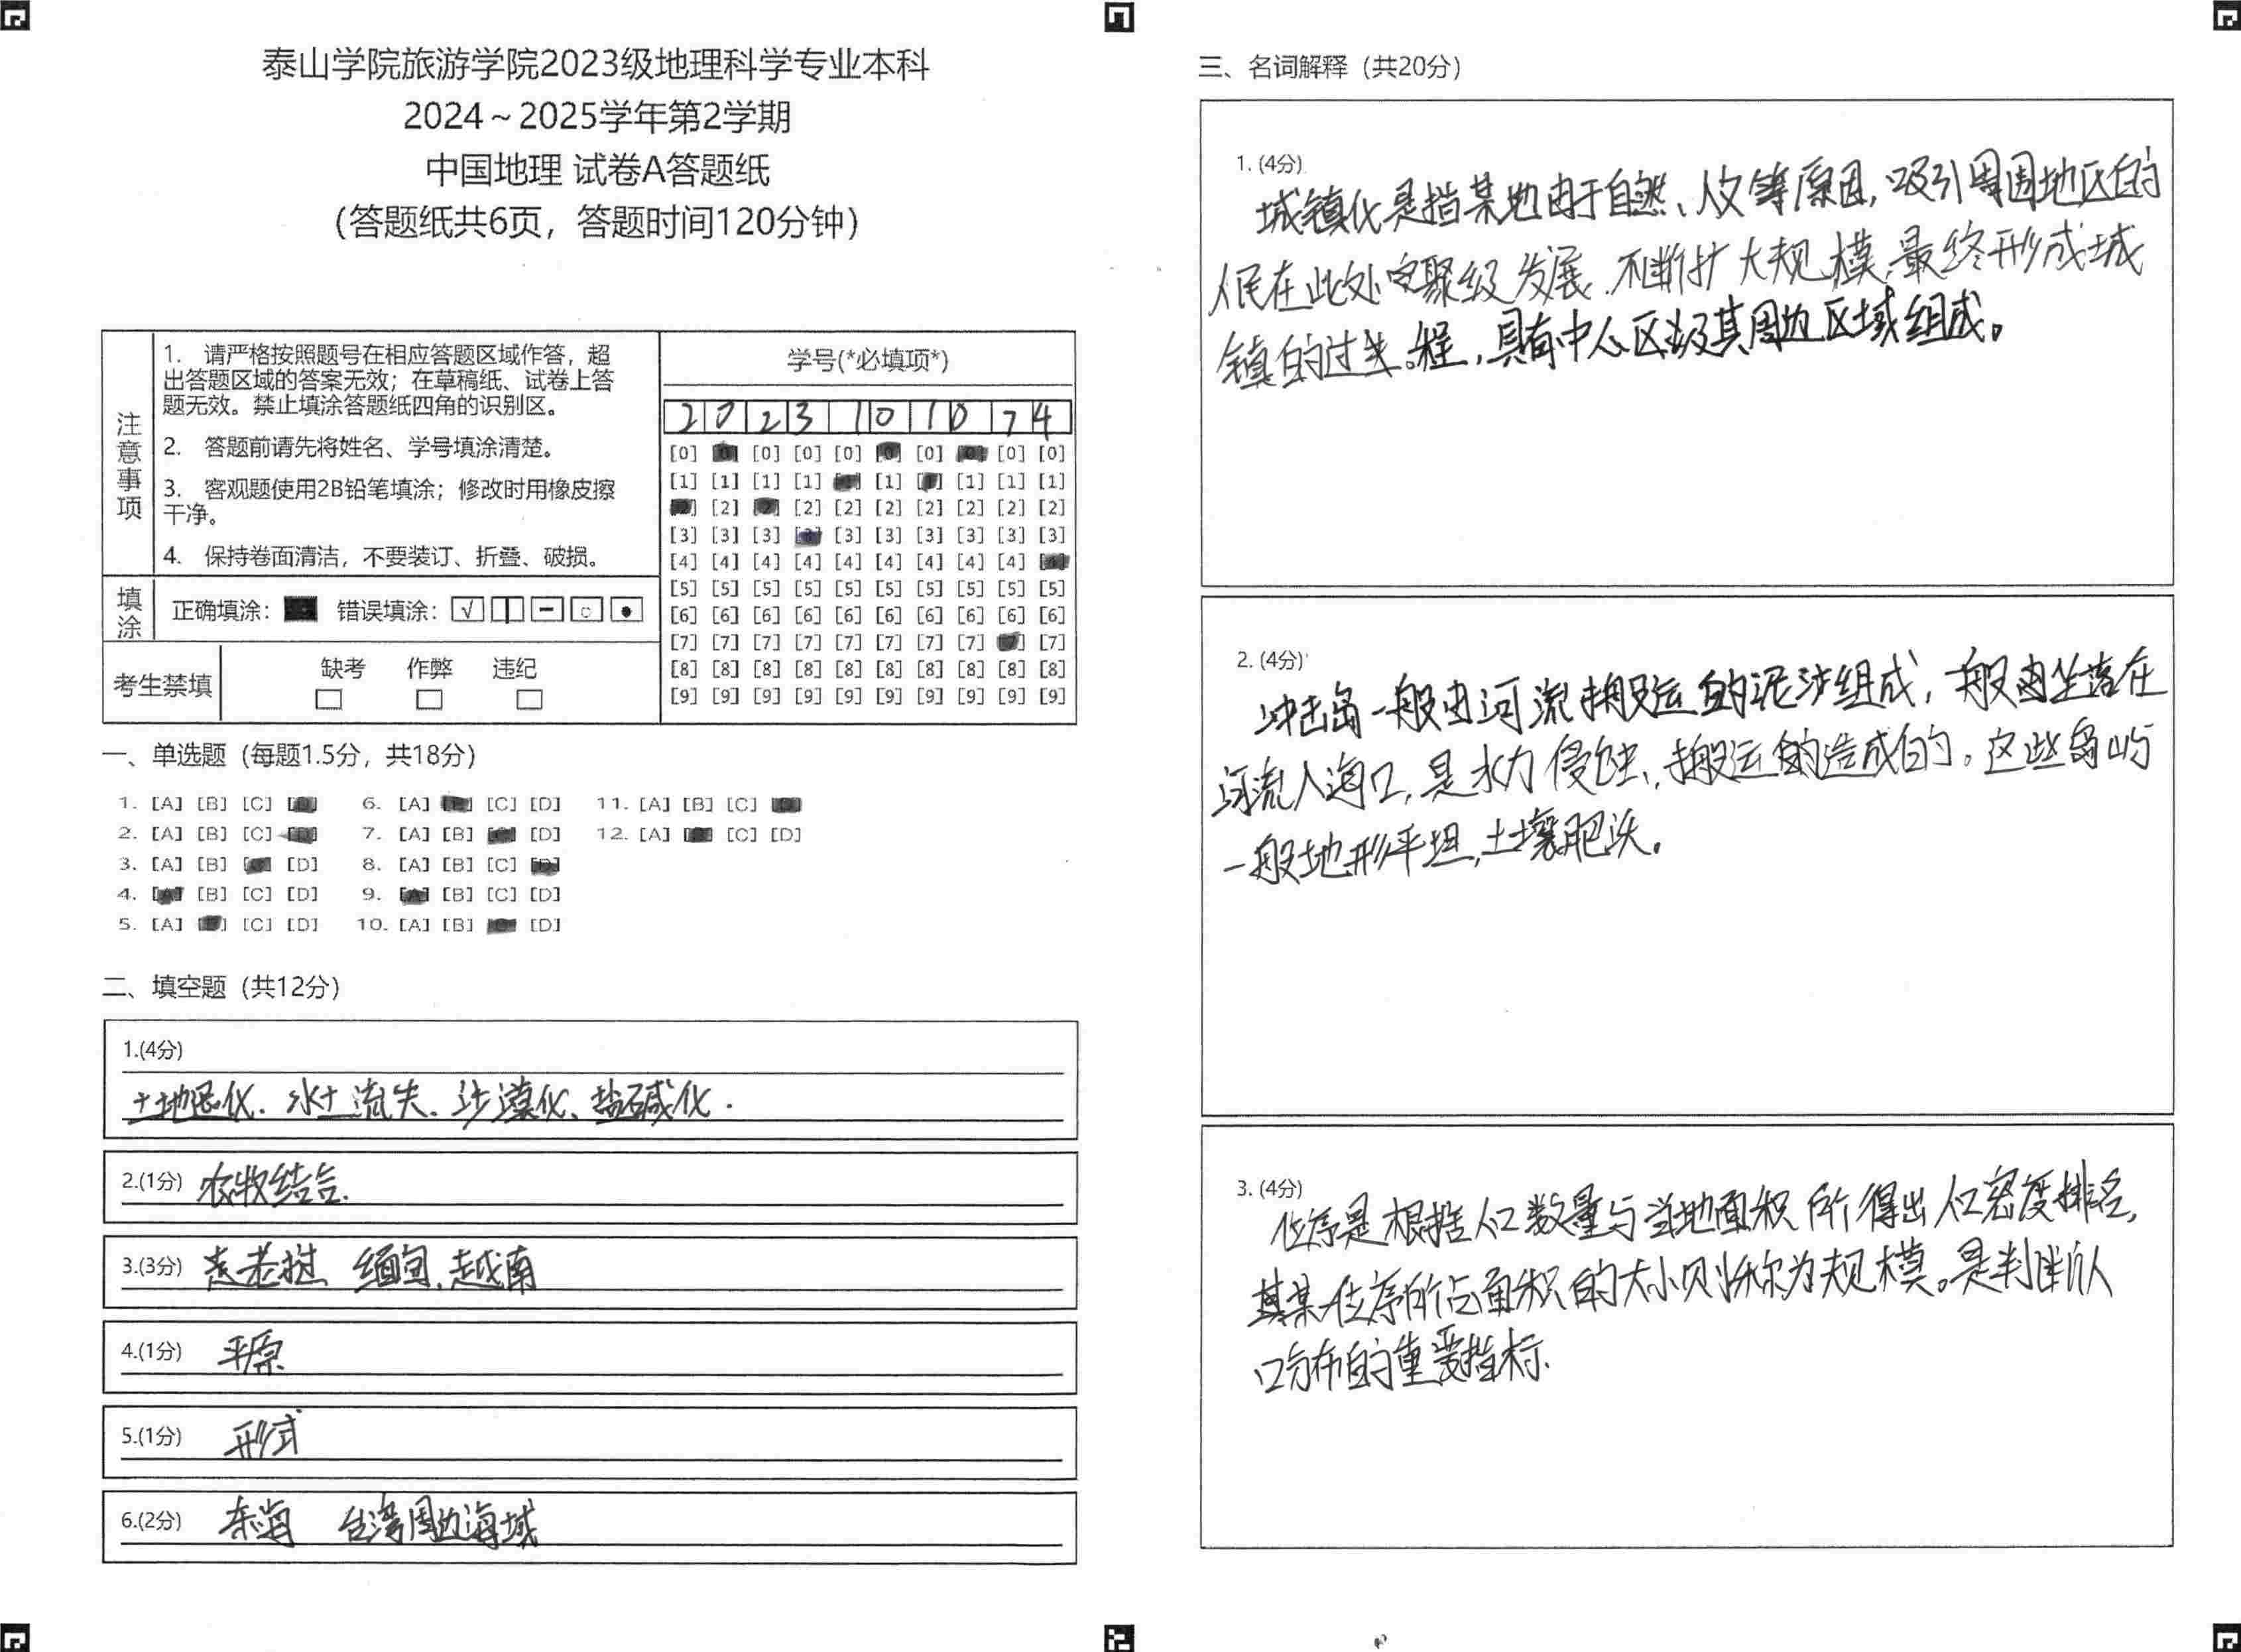 泰山学院旅游学院2023级地理科学专业本科
2024～2025学年第2学期
中国地理 试卷A答题纸
（答题纸共6页，答题时间120分钟）
注意事项
1. 请严格按照题号在相应答题区域作答，超
出答题区域的答案无效；在草稿纸、试卷上答
题无效。禁止填涂答题纸四角的识别区。
2. 答题前请先将姓名、学号填涂清楚。
3. 客观题使用2B铅笔填涂；修改时用橡皮擦
干净。
4. 保持卷面清洁，不要装订、折叠、破损。
填涂
正确填涂： 错误填涂：
考生禁填
缺考 作弊 违纪
学号(*必填项*)
2 0 2 3 1 0 1 0 7 4
[0] [0] [0] [0] [0] [0] [0] [0]
[1] [1] [1] [1] [1] [1] [1] [1]
[2] [2] [2] [2] [2] [2] [2] [2]
[3] [3] [3] [3] [3] [3] [3] [3] [3]
[4] [4] [4] [4] [4] [4] [4] [4] [4]
[5] [5] [5] [5] [5] [5] [5] [5] [5] [5]
[6] [6] [6] [6] [6] [6] [6] [6] [6] [6]
[7] [7] [7] [7] [7] [7] [7] [7] [7]
[8] [8] [8] [8] [8] [8] [8] [8] [8] [8]
[9] [9] [9] [9] [9] [9] [9] [9] [9] [9]
一、单选题（每题1.5分，共18分）
1. [A] [B] [C] 6. [A] [C] [D] 11. [A] [B] [C]
2. [A] [B] [C] 7. [A] [B] [D] 12. [A] [C] [D]
3. [A] [B] [D] 8. [A] [B] [C]
4. [B] [C] [D] 9. [B] [C] [D]
5. [A] [C] [D] 10. [A] [B] [D]
二、填空题（共12分）
1.(4分)
土地退化、水土流失、沙漠化、盐碱化.
2.(1分) 农牧结合.
3.(3分) 老挝 缅甸、越南
4.(1分) 平原
5.(1分) 形式
6.(2分) 东海 台湾周边海域
三、名词解释（共20分）
1. (4分)
城镇化是指某地由于自然、人文等原因，吸引周围地区的
人民在此处聚级发展，不断扩大规模，最终形成城
镇的过程，具有中心区域及其周边区域组成。
2. (4分)
冲击岛一般由河流搬运的泥沙组成，一般坐落在
河流入海口，是水力侵蚀、搬运造成的。这些岛屿
一般地形平坦，土壤肥沃。
3. (4分)
位序是根据人口数量与当地面积所得出人口密度排名，
某位序所占面积的大小则称为规模。是判断人
口分布的重要指标.